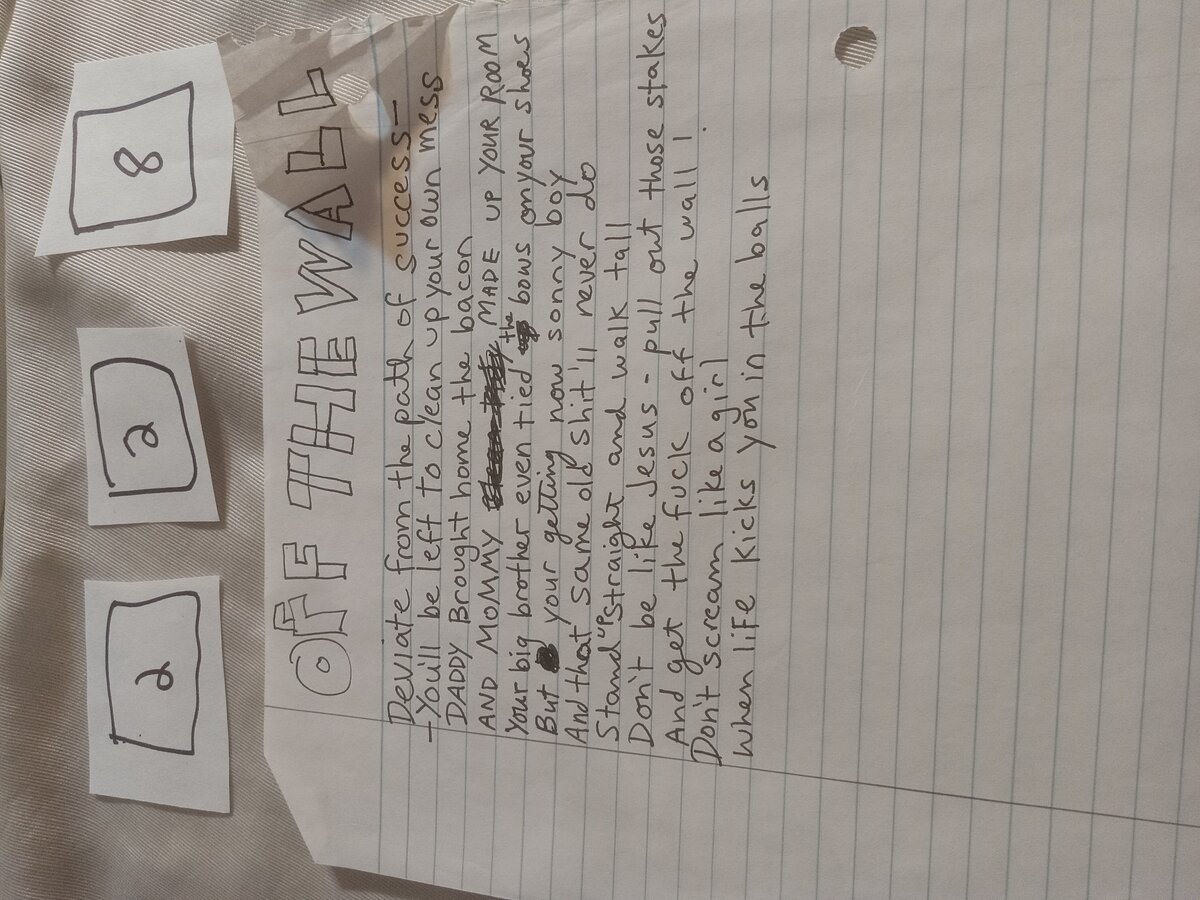 2 2 8
OFF THE WALL
Deviate from the path of success—
– You'll be left to clean up your own mess
DADDY Brought home the bacon
AND MOMMY MADE UP YOUR ROOM
Your big brother even tied the bows on your shoes
But your getting now sonny boy
And that same old shit'll never do
Stand up straight and walk tall
Don't be like Jesus - pull out those stakes
And get the fuck off the wall!
Don't scream like a girl
When life kicks you in the balls